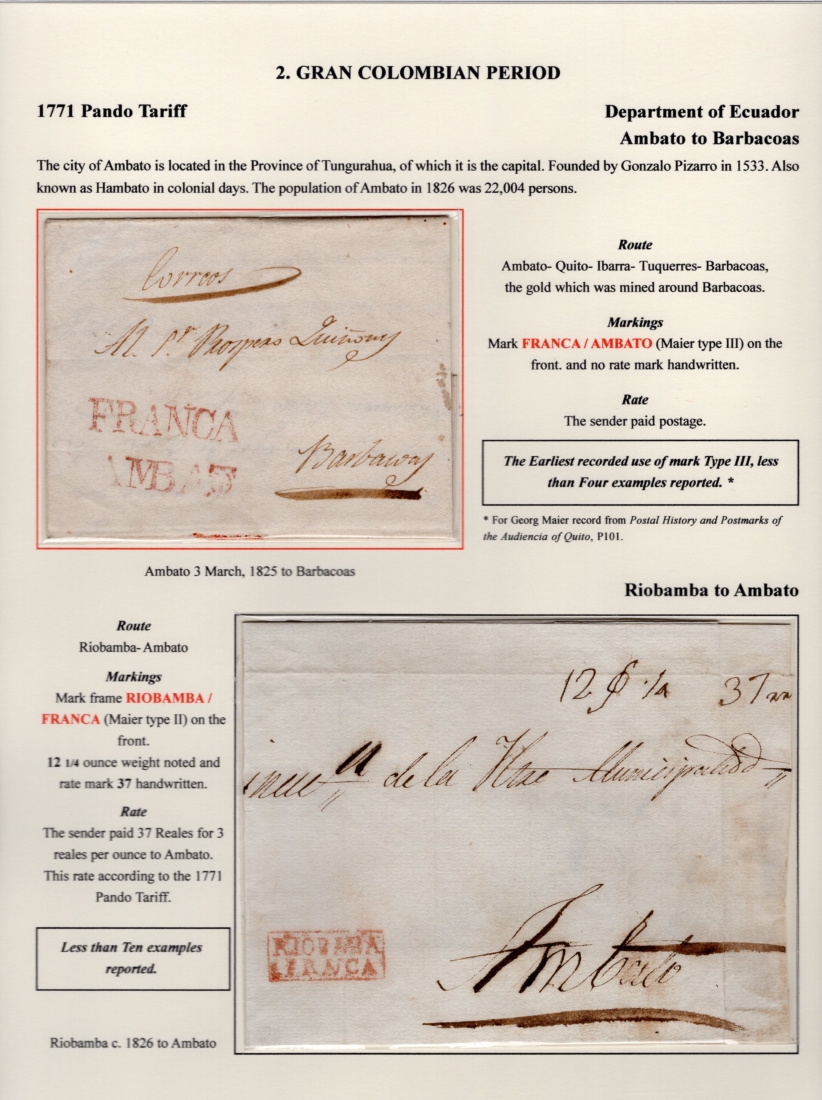 2. GRAN COLOMBIAN PERIOD
1771 Pando Tariff
Department of Ecuador
Ambato to Barbacoas
The city of Ambato is located in the Province of Tungurahua, of which it is the capital. Founded by Gonzalo Pizarro in 1533. Also
known as Hambato in colonial days. The population of Ambato in 1826 was 22,004 persons.
Correos
Al Sr Prospero Quiñones
FRANCA
AMBATO
Barbacoas
Ambato 3 March, 1825 to Barbacoas
Route
Ambato- Quito- Ibarra- Tuquerres- Barbacoas,
the gold which was mined around Barbacoas.
Markings
Mark FRANCA / AMBATO (Maier type III) on the
front. and no rate mark handwritten.
Rate
The sender paid postage.
The Earliest recorded use of mark Type III, less
than Four examples reported. *
* For Georg Maier record from Postal History and Postmarks of
the Audiencia of Quito, P101.
Riobamba to Ambato
Route
Riobamba- Ambato
Markings
Mark frame RIOBAMBA /
FRANCA (Maier type II) on the
front.
12 1/4 ounce weight noted and
rate mark 37 handwritten.
Rate
The sender paid 37 Reales for 3
reales per ounce to Ambato.
This rate according to the 1771
Pando Tariff.
Less than Ten examples
reported.
Riobamba c. 1826 to Ambato
12 37
de la Municipalidad
RIOBAMBA
FRANCA
Ambato